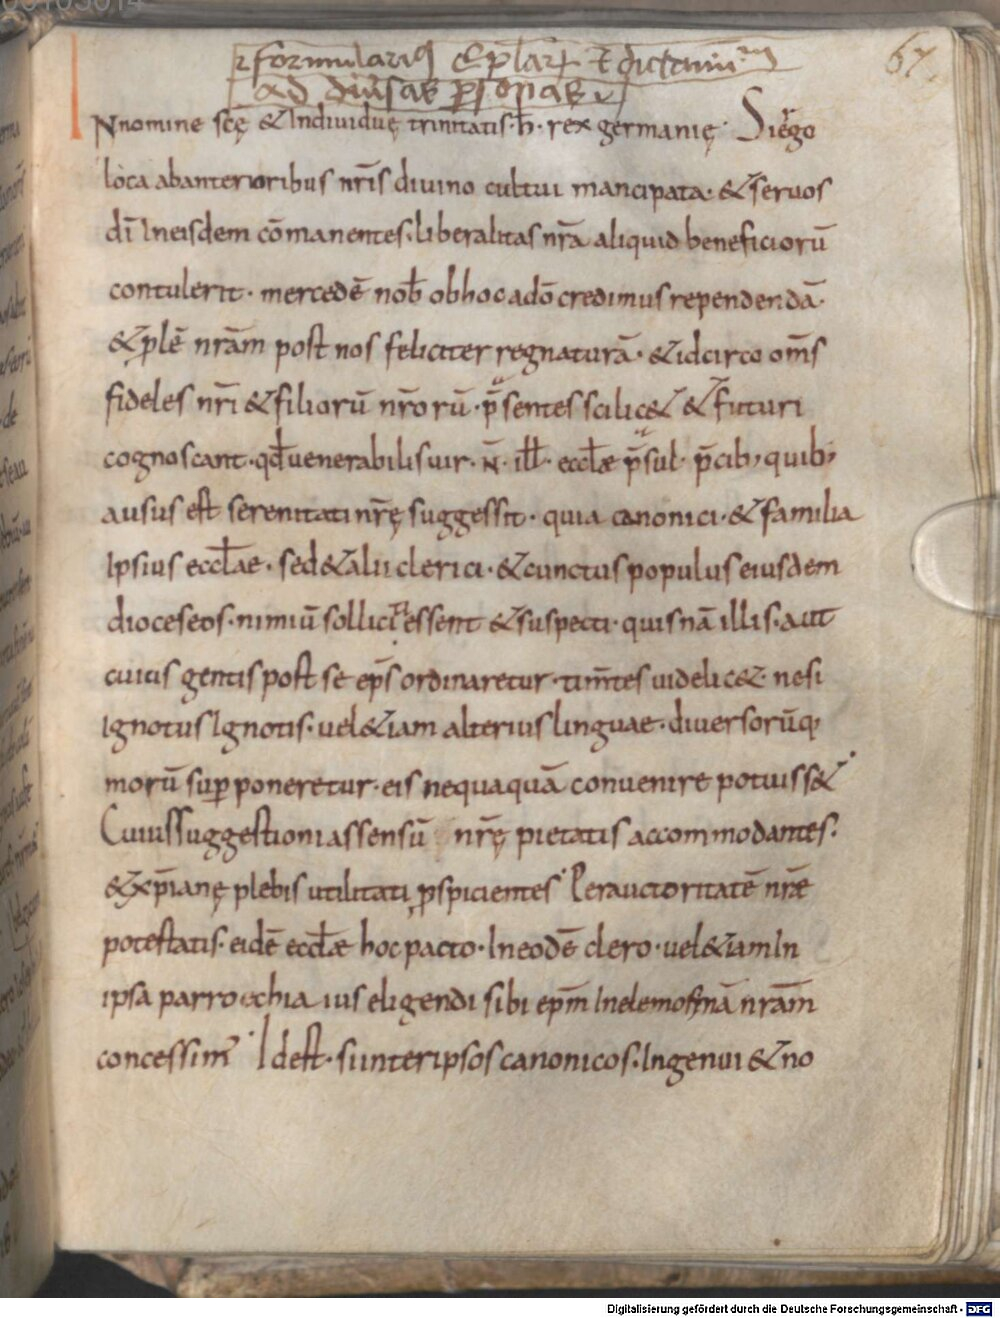 formulari9 Ep̄lar̄ & dictaminū
ad diūsas p̱sonas
67
INnomine scę & Individuę trinitatis· h̄· rex germanię· Si ergo
loca abanterioribus nr̄is divino cultui mancipata· & servos
dī Ineisdem cōmanentes· liberalitas nr̄a aliquid beneficiorū
contulerit· mercedē nob̄ obhocadō credimus rependendā·
& plē nrām post nos feliciter regnaturā· & idcirco om̄s
fideles nr̄i & filiorū nr̄orū· p̄sentes scilic& & futuri
cognoscant· qd̄ venerabilis vir· N̄· ill̄· eccl̄ae p̄sul· p̄cib; quib;
ausus est serenitati nr̄ę suggessit· quia canonici· & familia
Ipsius eccl̄ae· sed & alii clerici· & cunctus populus eiusdem
dioceseos· nimiū solliciti essent & suspecti· quisnā illis· aut
cuius gentis post se ep̄s ordinaretur· tim̄tes videlic& ne si
Ignotus Ignotis· vel &iam alterius linguae· diversorūq;
morū supponeretur· eis nequaquā convenire potuiss&·
Cuius suggestioni assensū nr̄ę pietatis accommodantes·
& xp̄ianę plebis utilitati p̱spicientes· Per auctoritatē nr̄ae
potestatis· eidē eccl̄ae hoc pacto· In eodē clero· vel &iam In
ipsa parrocchia ius eligendi sibi ep̄m In elemosinā nrām
concessim̄· Id est· si inter ipsos canonicos· Ingenui & no
Digitalisierung gefördert durch die Deutsche Forschungsgemeinschaft - DFG